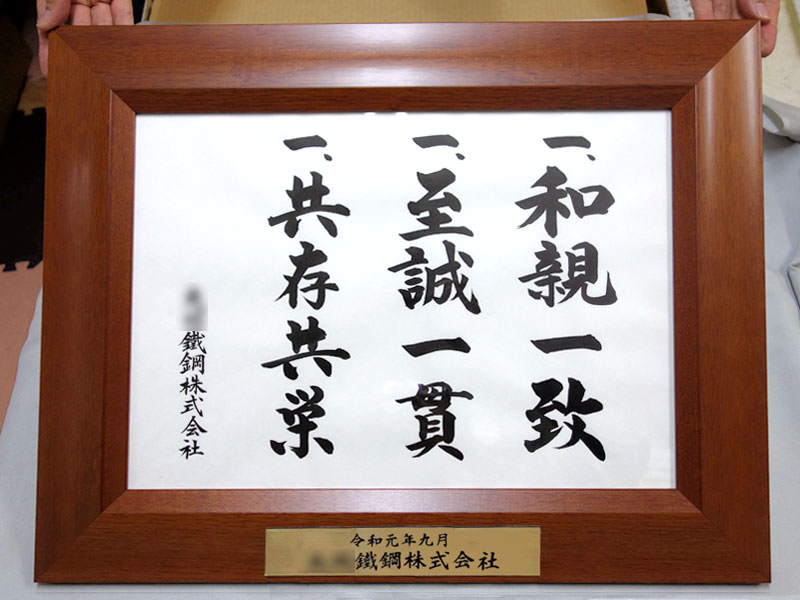 一、和親一致
一、至誠一貫
一、共存共栄
鐵鋼株式会社
令和元年九月
鐵鋼株式会社